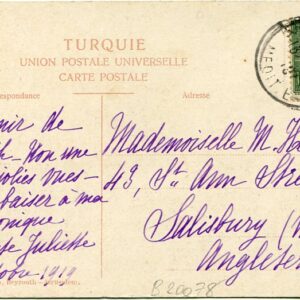 TURQUIE
UNION POSTALE UNIVERSELLE
CARTE POSTALE
respondance
Adresse
nir de
Non une
jolies vues
baiser à ma
onique
Juliette
1919
Mademoiselle M.
43, St Ann Stre
Salisbury
Anglete
Beyrouth - Jérusalem.
B20078